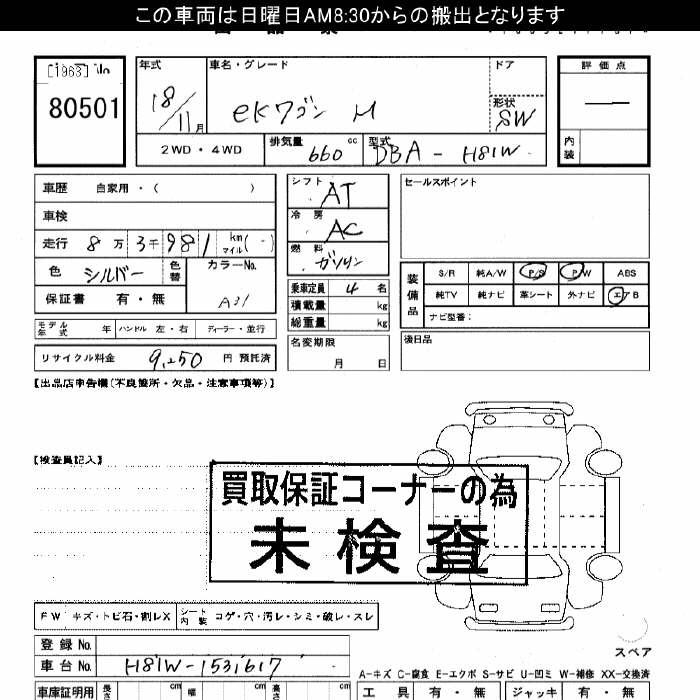 この車両は日曜日AM8:30からの搬出となります
[1963] No
80501
年式 18/11月
車名・グレード ekワゴン M
ドア
形状 SW
評価点 —
内装
2WD・4WD
排気量 660 cc
型式 DBA-H81W
車歴 自家用・( )
車検
走行 8万3千981 km マイル(-)
色 シルバー 色替
カラーNo. A31
保証書 有・無
シフト AT
冷房 AC
燃料 ガソリン
乗車定員 4 名
積載量 kg
総重量 kg
セールスポイント
装備品
S/R 純A/W P/S P/W ABS
純TV 純ナビ 革シート 外ナビ エアB
ナビ型番:
モデル年式 年 ハンドル 左・右 ディーラー・並行
リサイクル料金 9,250 円 預託済
名変期限 月 日
後日品
【出品店申告欄(不良箇所・欠品・注意事項等)】
【検査員記入】
買取保証コーナーの為
未検査
FW キズ・トビ石・割レX
シート内装 コゲ・穴・汚レ・シミ・破レ・スレ
登録No.
車台No. H81W-1531617
スペア
A-キズ C-腐食 E-エクボ S-サビ U-凹ミ W-補修 XX-交換済
車庫証明用 長さ cm 幅 cm 高さ cm
工具 有・無 ジャッキ 有・無